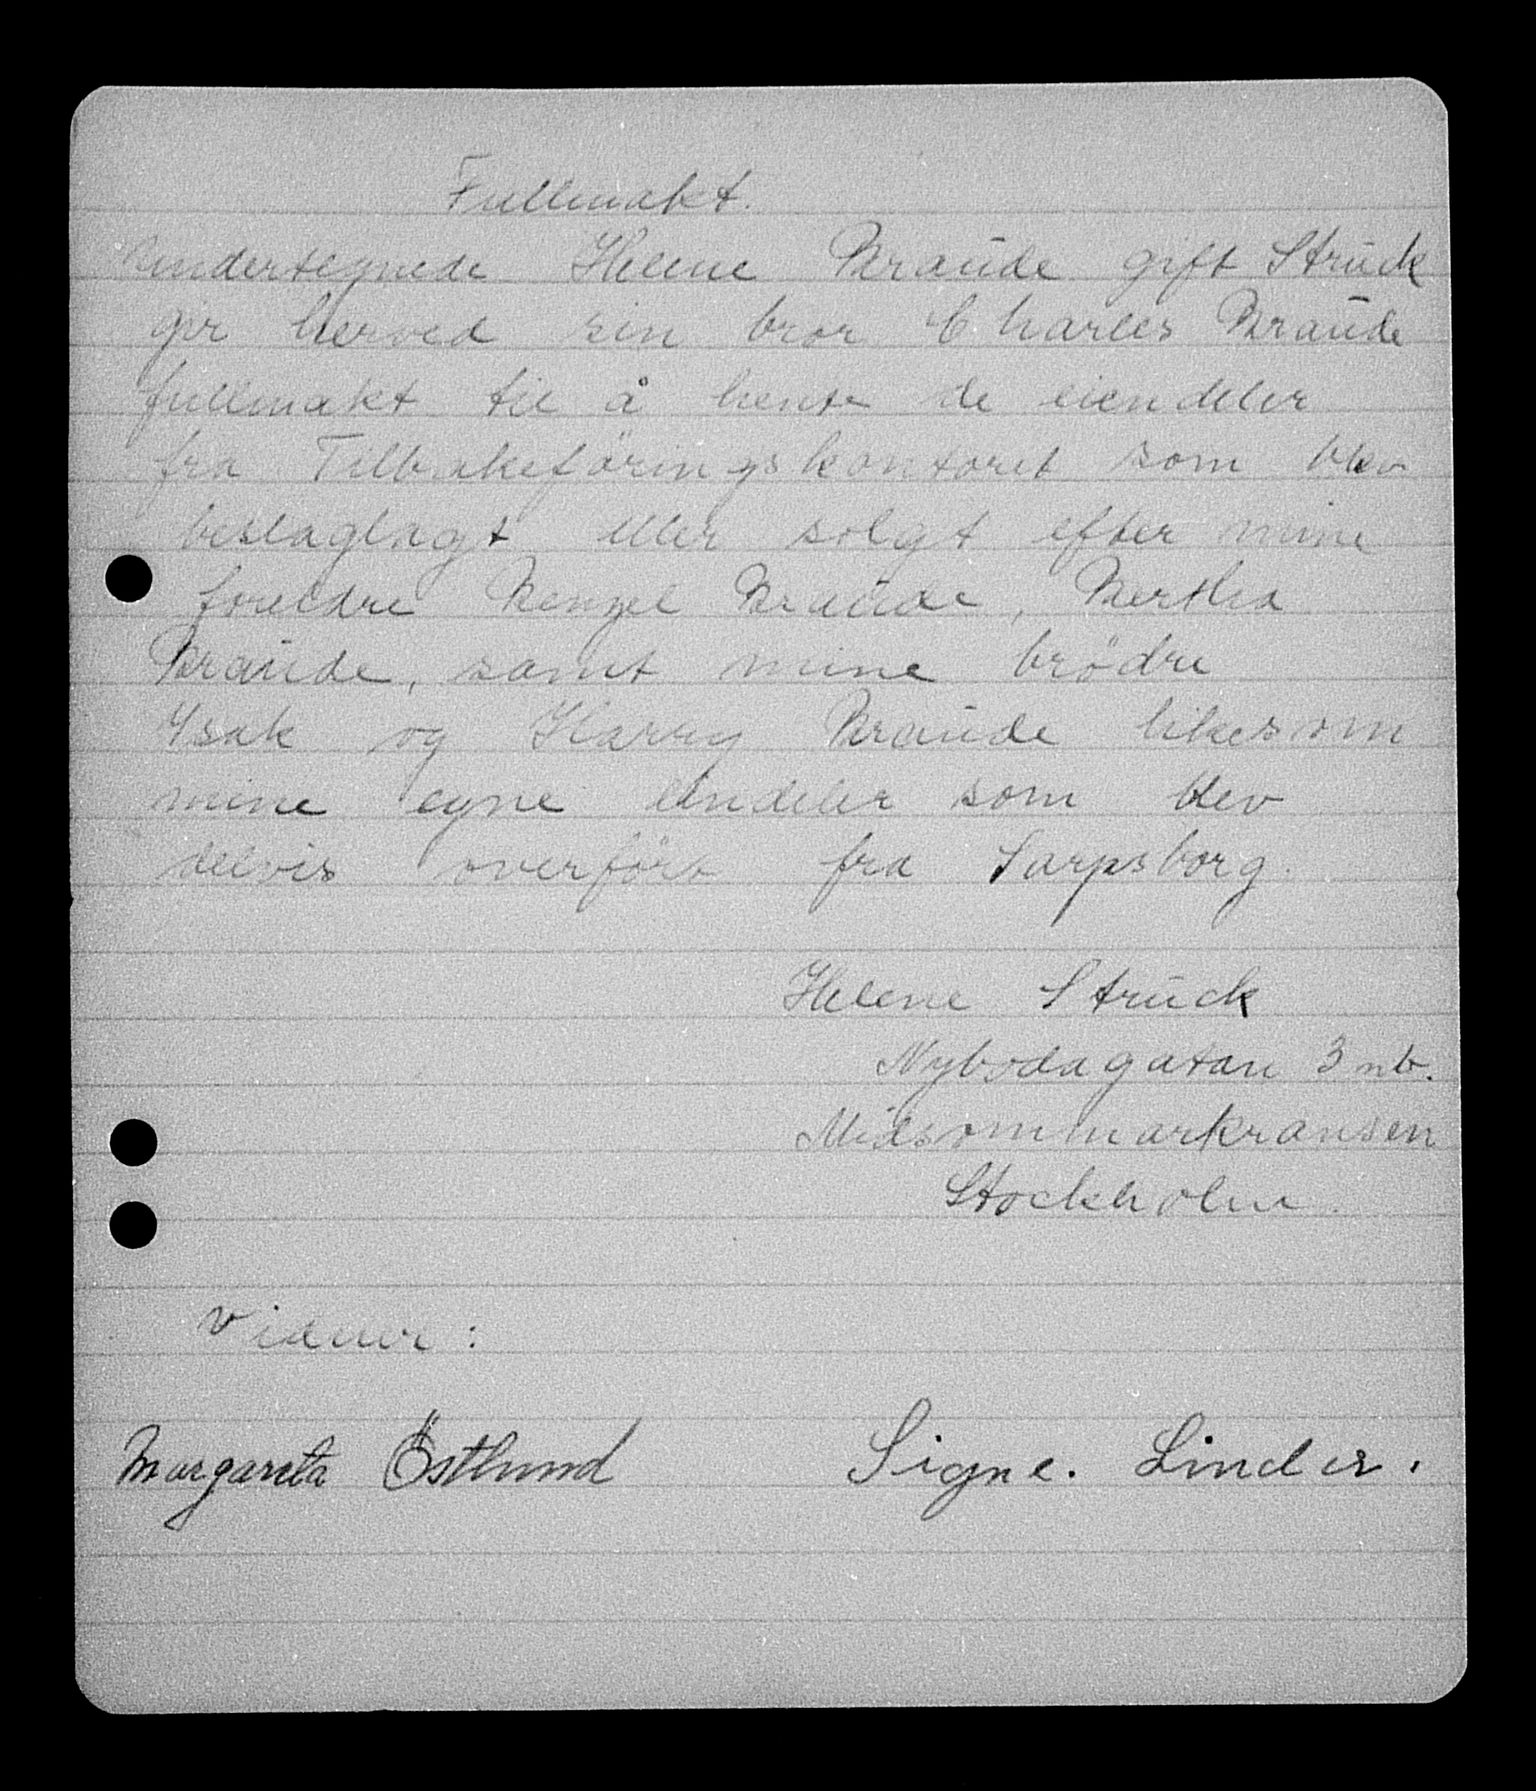 Fullmakt.
Undertegnede Helene Braude gift Struck
gir herved sin bror Charles Braude
fullmakt til å hente de eiendeler
fra Tilbakeföringskontoret som blev
beslaglagt eller solgt efter mine
foreldre Benzel Braude, Bertha
Braude, samt mine brödre
Isak og Harry Braude likesom
mine egne eindeler som blev
delvis overfört fra Sarpsborg.
Helene Struck
Nybodagatan 3 nb.
Midsommarkransen
Stockholm.
Vidner:
Margareta Östlund Signe. Linder.